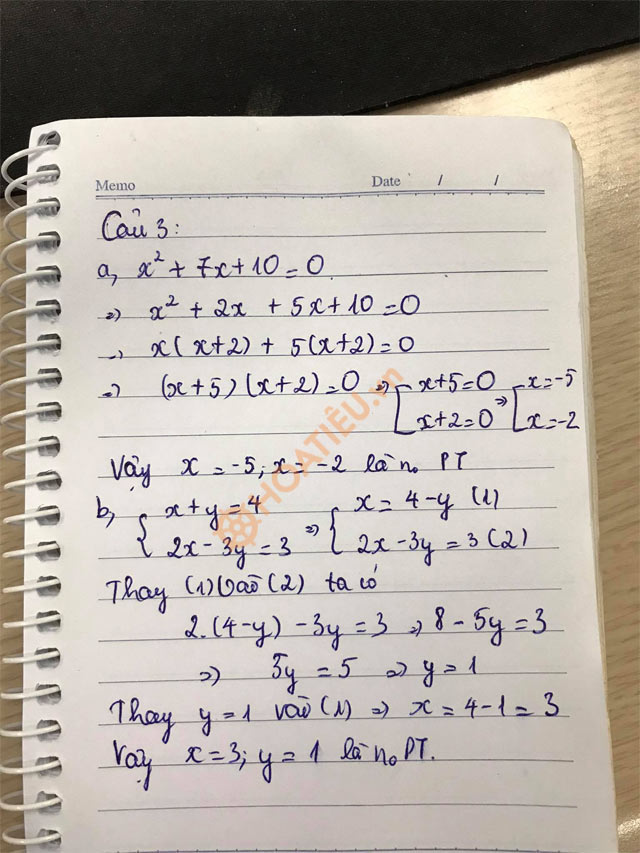 Memo Date / /
Câu 3:
a, x² + 7x + 10 = 0
=> x² + 2x + 5x + 10 = 0
-> x(x+2) + 5(x+2) = 0
=> (x+5)(x+2) = 0 => [x+5=0 => [x=-5
x+2=0 x=-2
Vậy x = -5; x = -2 là no PT
b, {x + y = 4 => {x = 4-y (1)
2x - 3y = 3 2x - 3y = 3 (2)
Thay (1) vào (2) ta có
2.(4-y) - 3y = 3 => 8 - 5y = 3
=> 5y = 5 => y = 1
Thay y = 1 vào (1) => x = 4-1 = 3
Vậy x = 3; y = 1 là no PT.
HOATIÊU.vn